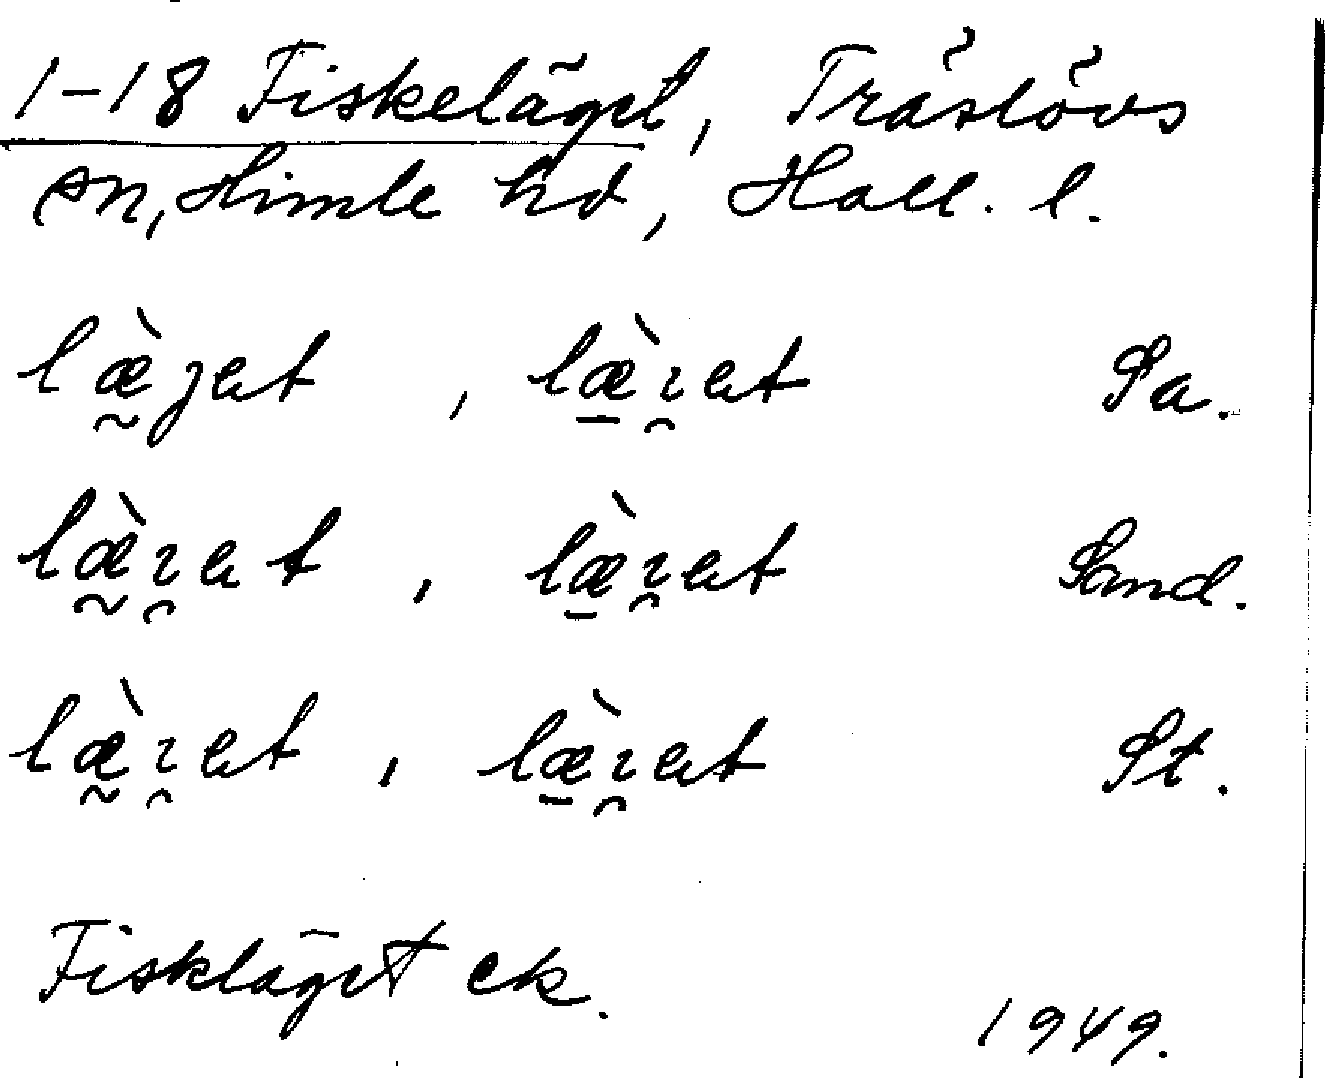 1-18 Fiskeläget, Träslövs
sn, Himle hd, Hall. l.
læ̰̀jet, læ̱̀ı̯et Sa.
læ̰̀ı̯et, læ̱̀ı̯et Sand.
læ̰̀ı̯et, læ̱̀ı̯et St.
Fiskläget ek.
1949.